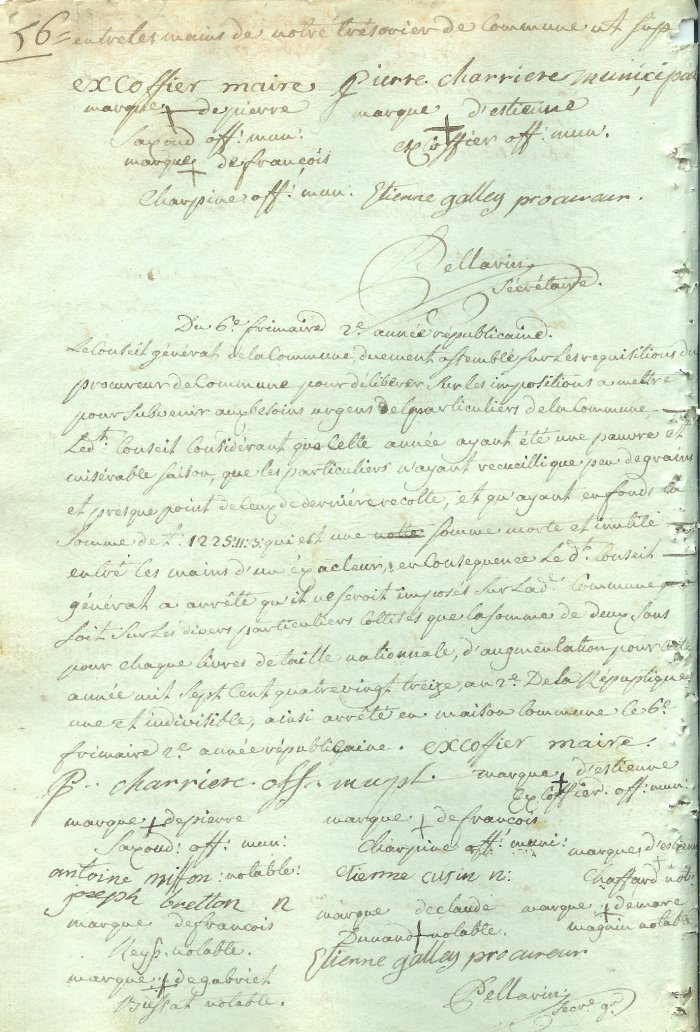 56=
entre les mains de notre trésorier de Commune ut sup
excoffier maire Pierre charriere municipal
marque + de pierre marque d'estienne
Saxoud off: mun: + excoffier off: mun.
marque + de françois
Charpine off: mun: Etienne galley procureur.
Pellarin
Sécrétaire.
Du 6e. frimaire 2e. année républicaine.
Le Conseil général de la Commune, duement assemblé sur les requisitions du
procureur de Commune pour déliberer sur les impositions a mettre
pour subvenir aux besoins urgens des particuliers de la Commune
Ledt. Conseil Considérant que Cette année ayant été une pauvre et
misérable saison, que les particuliers n'ayant recueilli que peu de grains
et presque point de Ceux de dernière recolte, et qu'ayant en fonds la
somme de 1225:11:3: qui est une somme morte et inutile
entre les mains d'un éxacteur, en Consequence Le dt. Conseil
général a arrêté qu'il ne seroit imposés sur lad. Commune
soit sur Les divers particuliers Cottisés que la somme de deux sous
pour chaque livres de taille nationnale, d'augmentation pour cette
année mil sept Cent quatre vingt treize, an 2e. De la Republique
une et indivisible, ainsi arrêté en maison Commune le 6e.
frimaire 2e. année républicaine. excoffier maire.
P. charriere. off. muplt. marque + d'estienne
Excoffier. off: mun:
marque + de pierre marque + de françois
Saxoud: off: mun: Charpine off: muni: marque + d'estienne
antoine miffon: notable: etienne cusin n: Chaffard notb:
joseph bretton n
marque de françois marque de claude marque + de mare
Reys. notable. Dunand + notable. magnin notable
Etienne galley procureur
marque + de gabriel
Vuffat notable. Pellarin
Secre. gr.